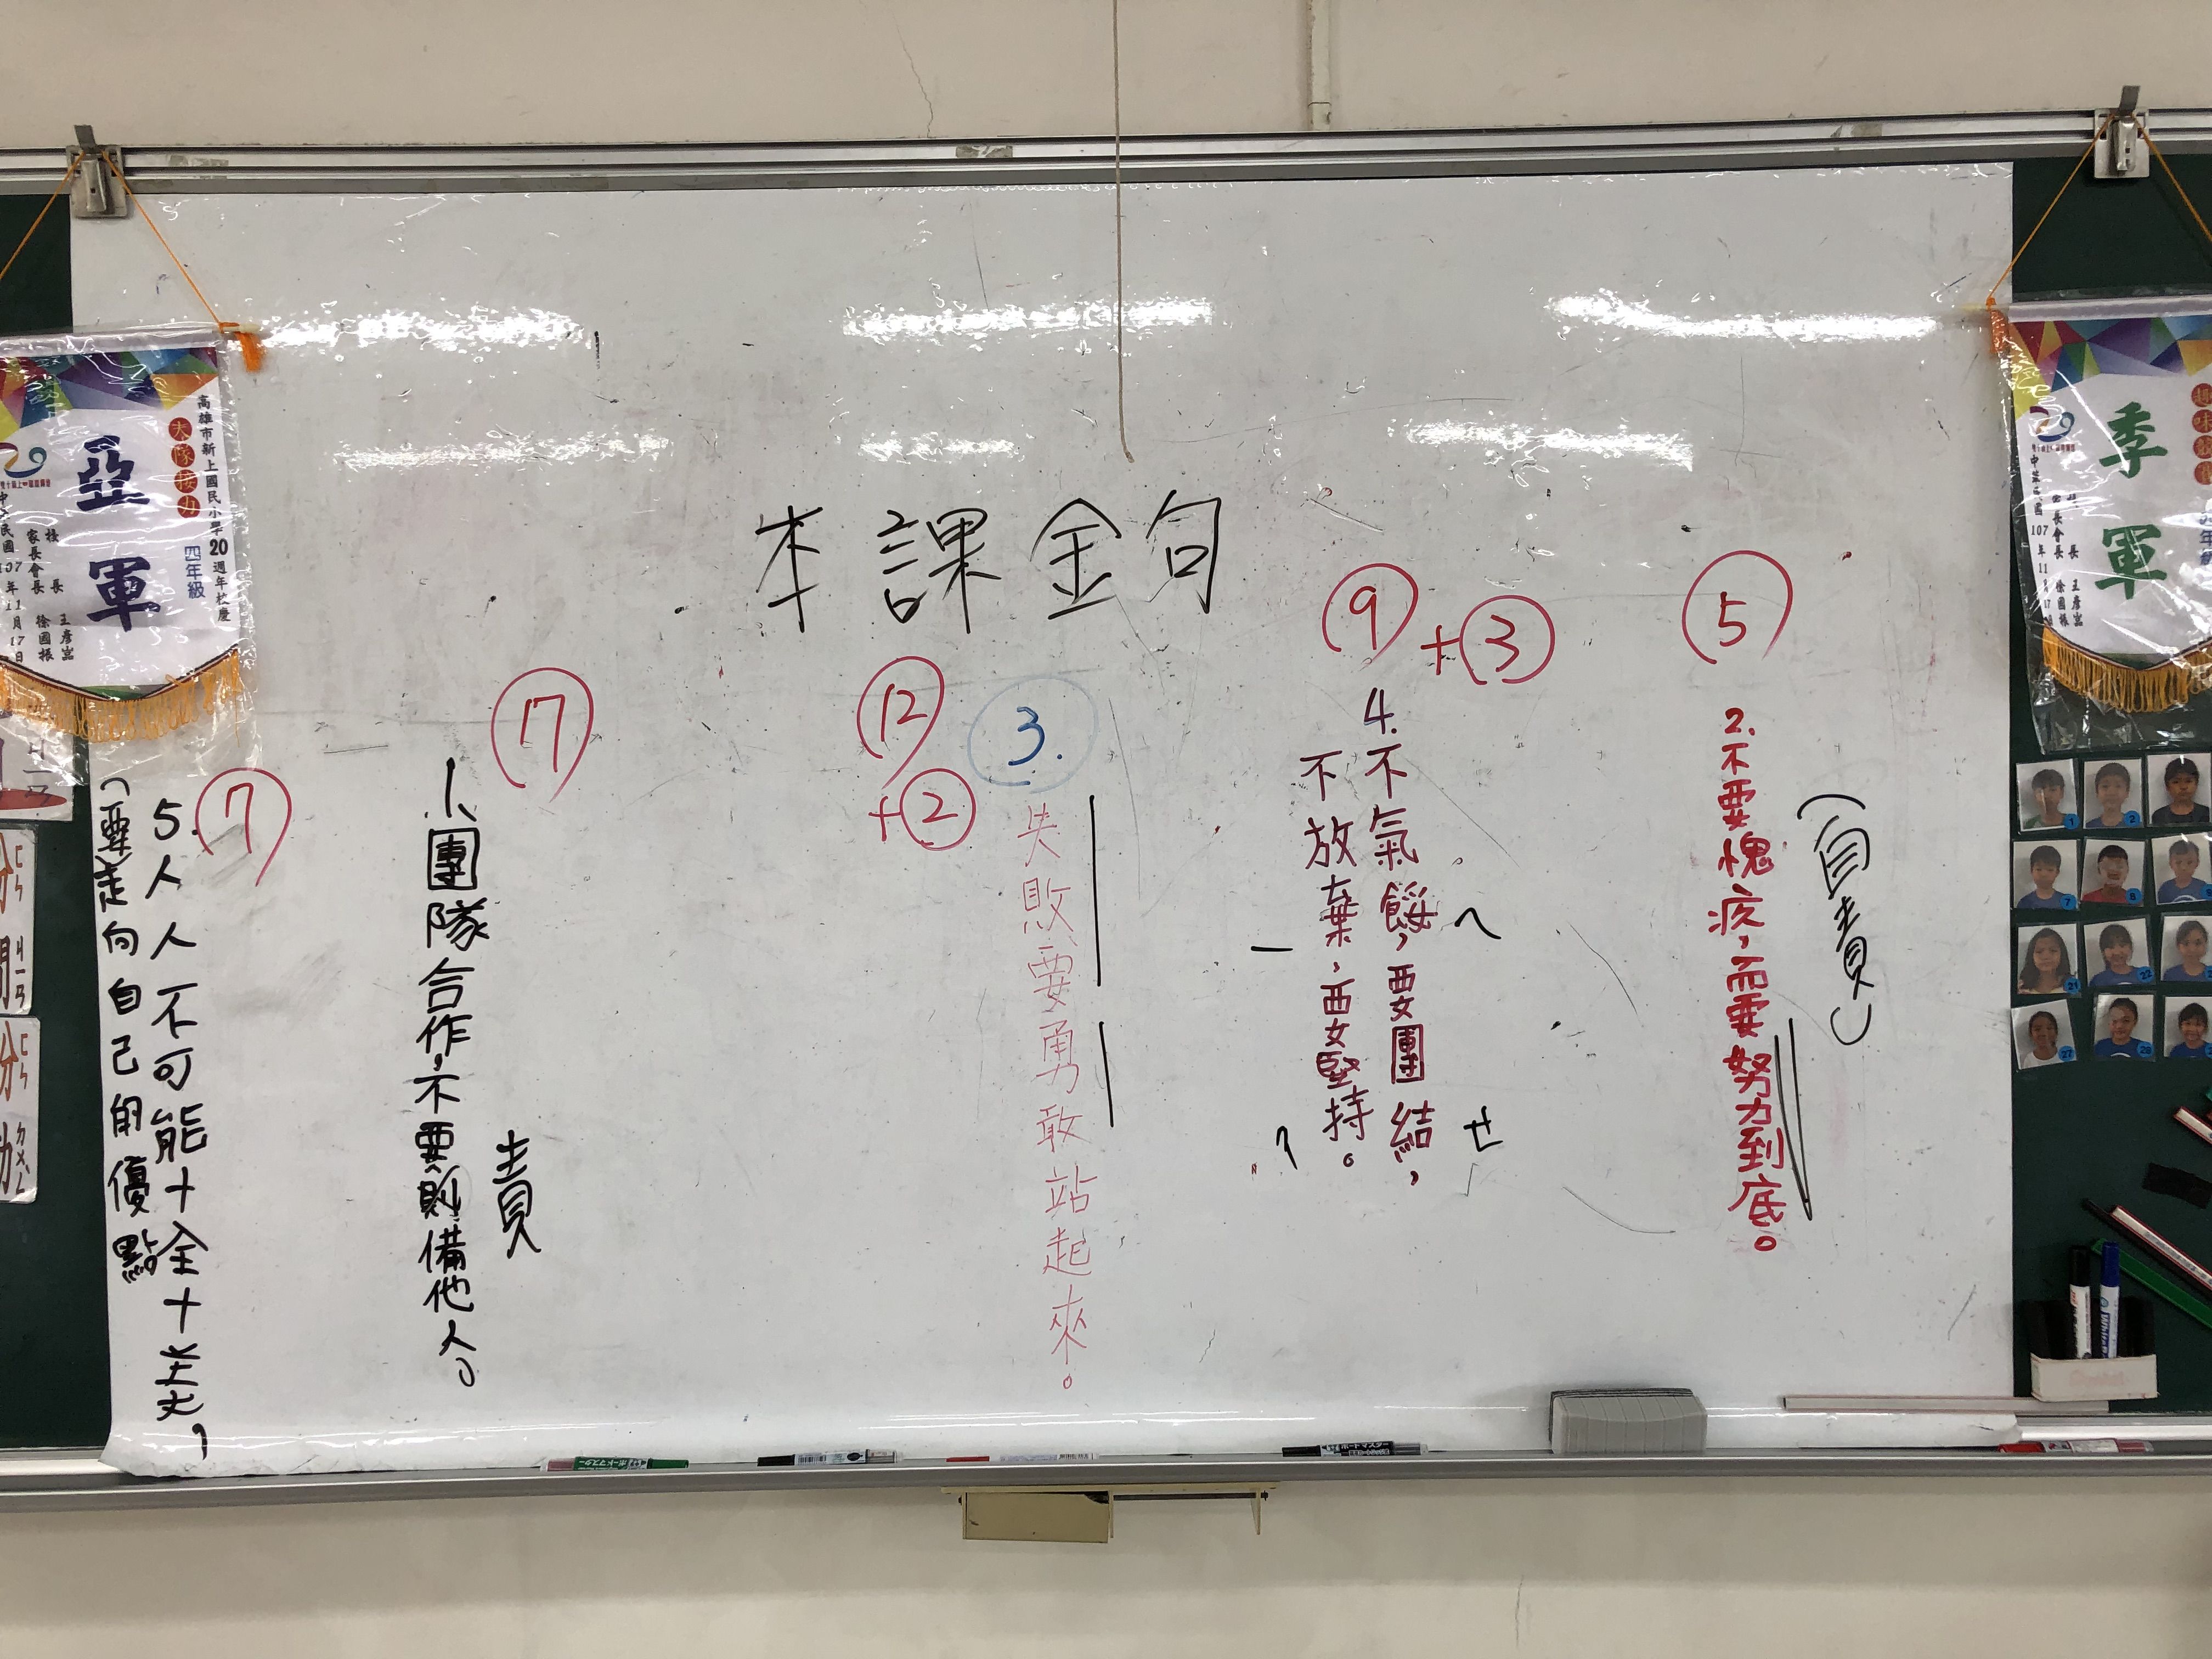 本課金句
⑤
2.不要愧疚,而要努力到底。
(自責)
⑨+③
4.不氣餒,要團結,
不放棄,要堅持。
ㄟ
ㄝ
⑫+②
③.
失敗要勇敢站起來。
⑰
1、團隊合作,不要則備他人。
責
⑦
5.人人不可能十全十美,
(要走向自己的優點
高雄市新上國民小學20週年校慶
大隊接力
四年級
亞軍
校長
家長會長 徐國振
中華民國107年11月17日
季軍
校長
家長會長 徐國振
中華民國107年11月17日